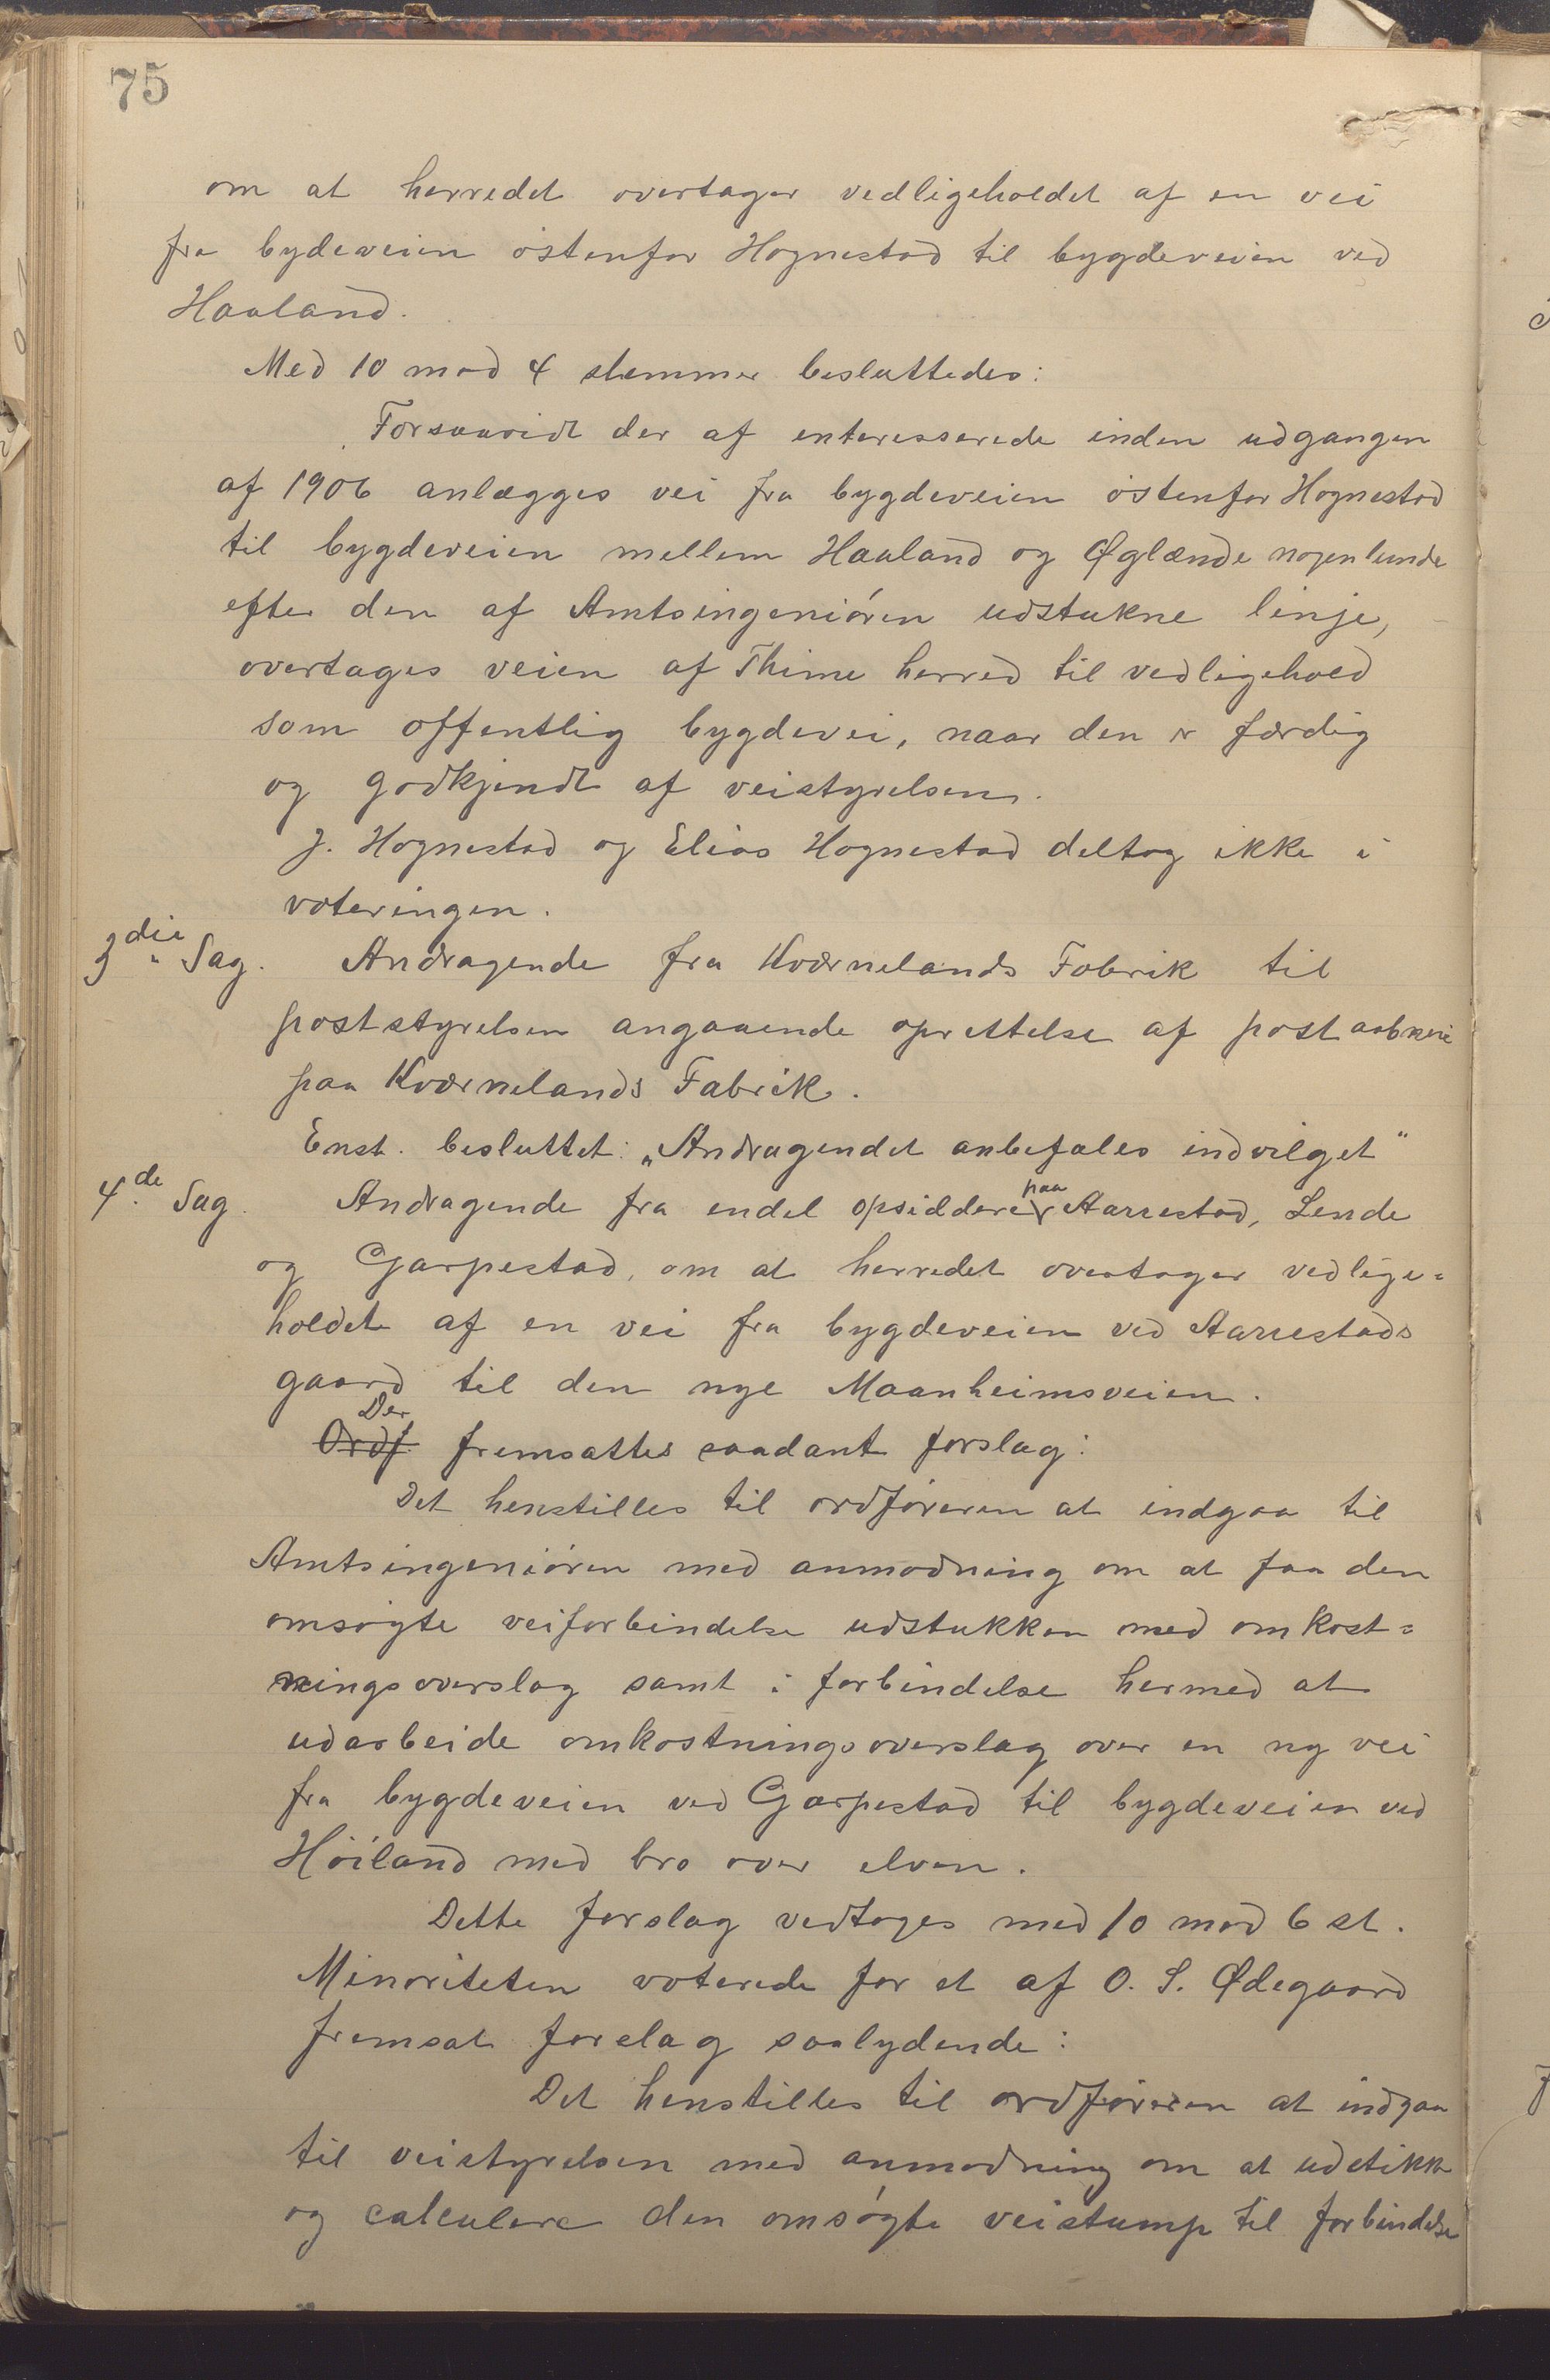 75
om at herredet overtager vedligeholdet af en vei
fra bydeveien östenfor Hognestad til bygdeveien ved
Haaland.
Med 10 mod 4 stemmer besluttedes:
Forsaavidt der af enteresserede inden udgangen
af 1906 anlægges vei fra bygdeveien östenfor Hognestad
til bygdeveien mellem Haaland og Øglænde nogenlunde
efter den af Amtsingeniören udstukne linje,
overtages veien af Thime herred til vedligehold
som offentlig bygdevei, naar den er færdig
og godkjendt af veistyrelsen.
J. Hognestad og Elias Hognestad deltog ikke i
voteringen.
3die Sag. Andragende fra Kværnelands Fabrik til
poststyrelsen angaaende oprettelse af postaabneri
paa Kværnelands Fabrik.
Enst. besluttet: „Andragendet anbefales indvilget"
4de Sag. Andragende fra endel opsiddere paa Aarrestad, Lende
og Garpestad, om at herredet overtager vedlige=
holdet af en vei fra bygdeveien ved Aarrestads
gaard til den nye Maanheimsveien.
Ordf. Der fremsattes saadant forslag:
Det henstilles til ordföreren at indgaa til
Amtsingeniören med anmodning om at faa den
omsögte veiforbindelse udstukken med omkost=
ningsoverslag samt i forbindelse hermed at
udarbeide omkostningsoverslag over en ny vei
fra bygdeveien ved Garpestad til bygdeveien ved
Höiland med bro over elven.
Dette forslag vedtoges med 10 mod 6 st.
Minoriteten voterede for et af O. S. Ødegaard
fremsat forslag saalydende:
Det henstilles til ordföreren at indgaa
til veistyrelsen med anmodning om at udstikke
og calculere den omsögte veistump til forbindelse